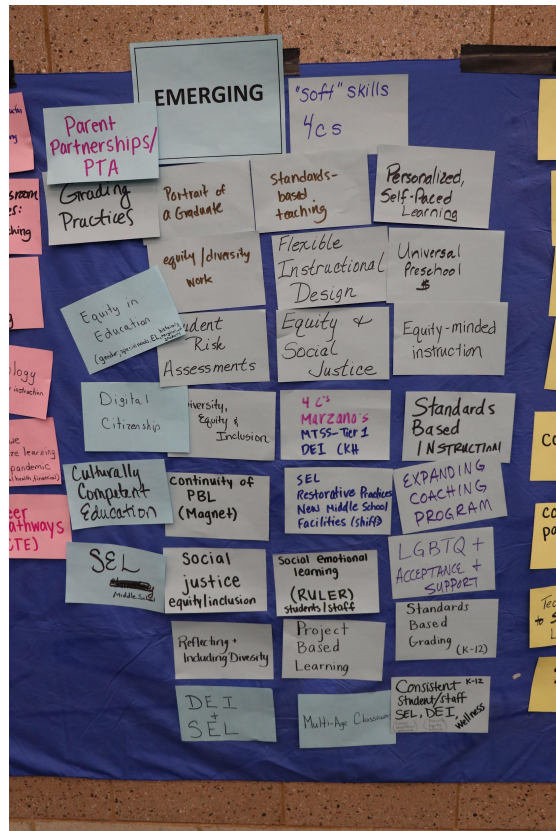 EMERGING
"Soft" Skills
4cs
Parent
Partnerships/
PTA
Grading
Practices
Portrait of
a Graduate
Standards-
based
teaching
Personalized,
Self-Paced
Learning
equity/diversity
work
Flexible
Instructional
Design
Universal
Preschool
$
Equity in
Education
Risk
Assessments
Equity &
Social
Justice
Equity-minded
instruction
Digital
Citizenship
Equity &
Inclusion
4 C's
Marzano's
MTSS-Tier 1
DEI CKH
Standards
Based
INSTRUCTIONAL
Culturally
Competent
Education
continuity of
PBL
(Magnet)
SEL
Restorative Practices
New Middle School
Facilities (shift)
EXPANDING
COACHING
PROGRAM
SEL
Social
justice
equity/inclusion
Social emotional
learning
(RULER)
students/staff
LGBTQ +
ACCEPTANCE &
SUPPORT
Reflecting +
Including Diversity
Project
Based
Learning
Standards
Based
Grading (K-12)
DEI
+
SEL
Multi-Age
Consistent K-12
student/staff
SEL, DEI,
wellness